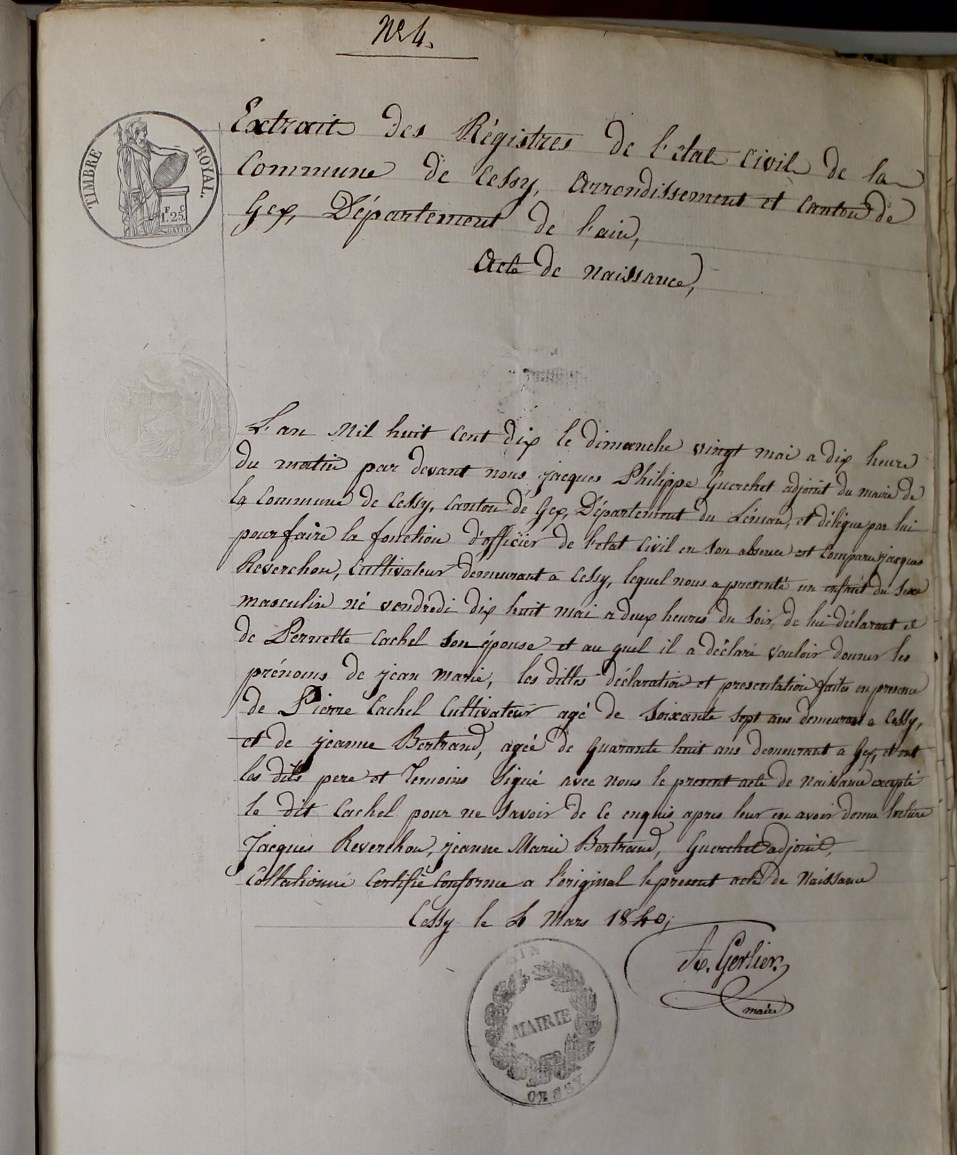 N° 4.
TIMBRE ROYAL.
1F 25C
Extrait des Régistres de l'état Civil de la
Commune de Cessy, arrondissement et canton de
Gex, Département de l'ain,
Acte de naissance,
L'an Mil huit cent dix le dimanche vingt mai a dix heure
du matin par devant nous jacques Philippe Guerchet adjoint du maire de
la Commune de Cessy, Canton de Gex, Département du Léman, et délégué par lui
pour faire la fonction d'officier de l'etat Civil en son absence est Comparu jacques
Reverchon, Cultivateur demeurant a Cessy, lequel nous a presenté un enfant du Sexe
masculin né vendredi dix huit mai a deux heures du soir, de lui déclarant et
de Pernette Cachel son épouse et au quel il a déclaré vouloir donner les
prénoms de jean marie, les dittes déclaration et presentation faites en presence
de Pierre Cachel Cultivateur agé de soixante sept ans demeurant a Cessy,
et de jeanne Bertrand, agée de Quarante huit ans demeurant a Gex, et ont
les dits pere et Temoins signé avec nous le present acte de Naissance excepté
le dit Cachel pour ne savoir de ce enquis apres leur en avoir donné lecture
Jacques Reverchon, jeanne Marie Bertrand, Guerchet adjoint,
Collationné Certifié Conforme a l'original le present acte de Naissance
Cessy le 4 Mars 1840,
Gerlier
maire
AIN
MAIRIE
CESSY